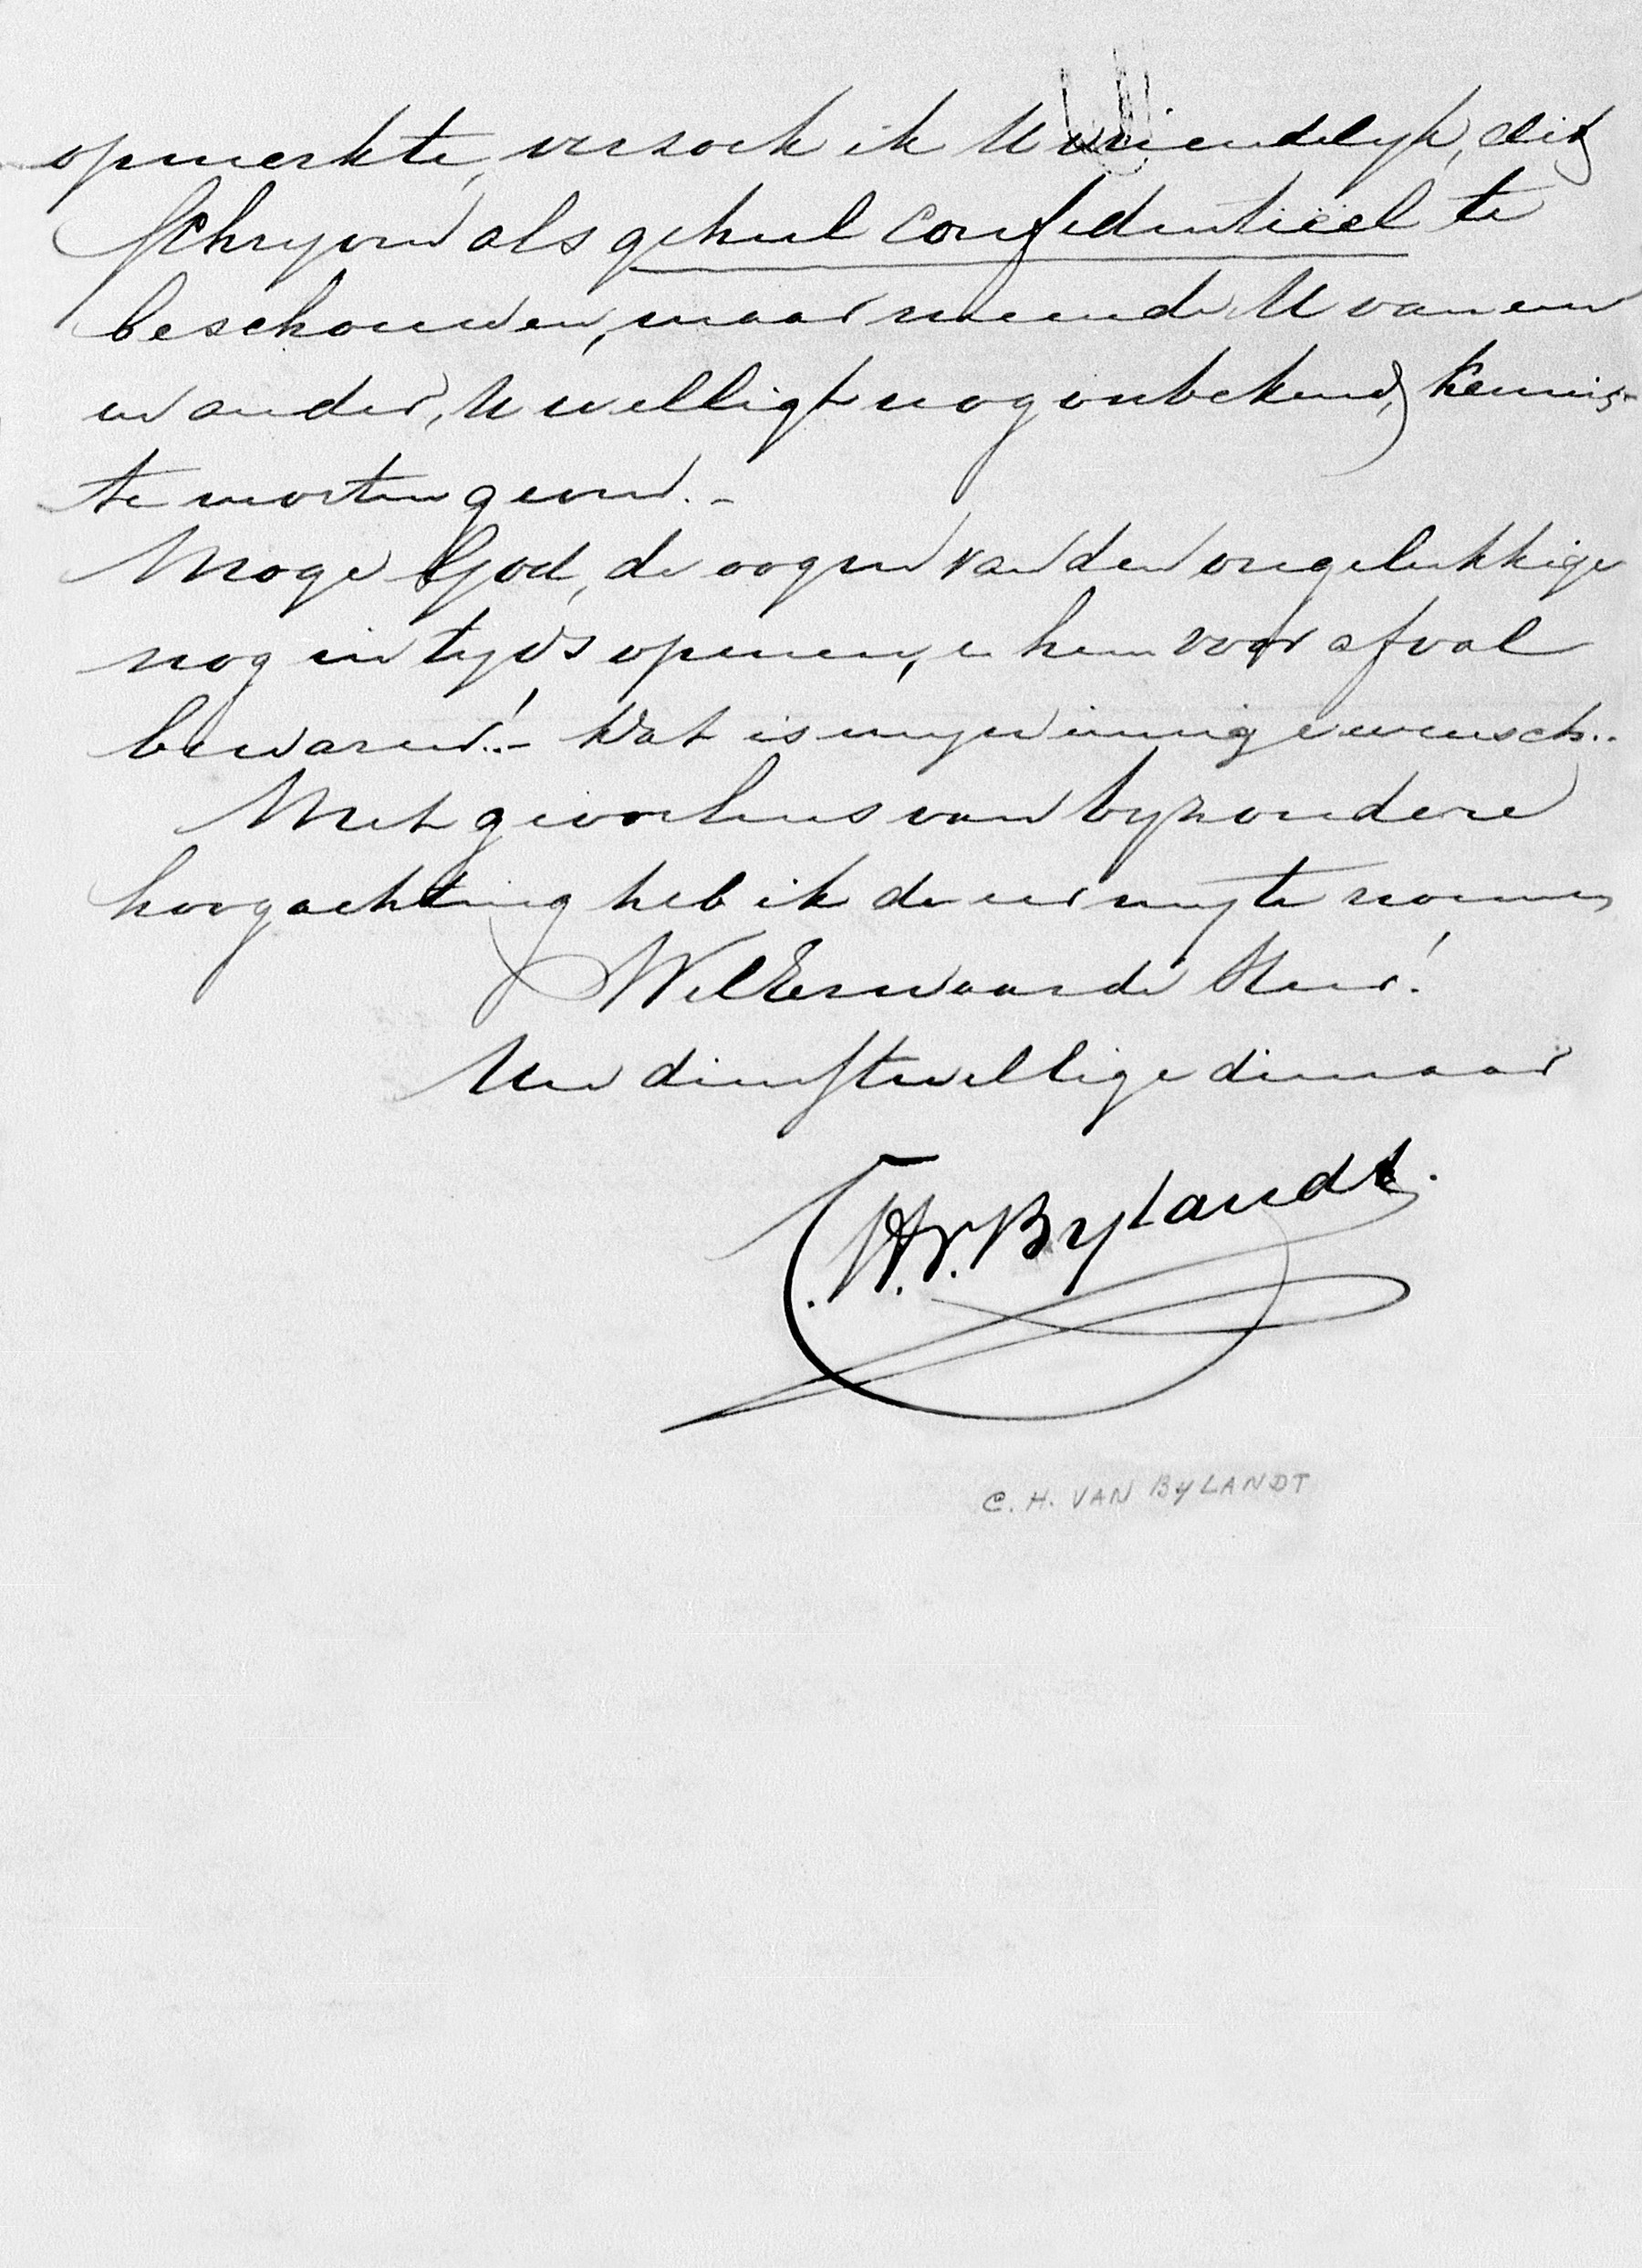 opmerkte, verzoek ik U vriendelyk, dit
schryven als geheel confidentieel te
beschouwen, maar meende U van een
en ander, U welligt nog onbekend, kennis
te moeten geven. -
Moge God, de oogen van den ongelukkige
nog in tyds openen, en hem voor afval
bewaren! - Dat is myn innige wensch..
Met gevoelens van byzondere
hoogachting heb ik de eer my te noemen
WelEerwaarde Heer!
Uw dienstwillige dienaar
C.H.v.Bylandt.
C. H. VAN BYLANDT